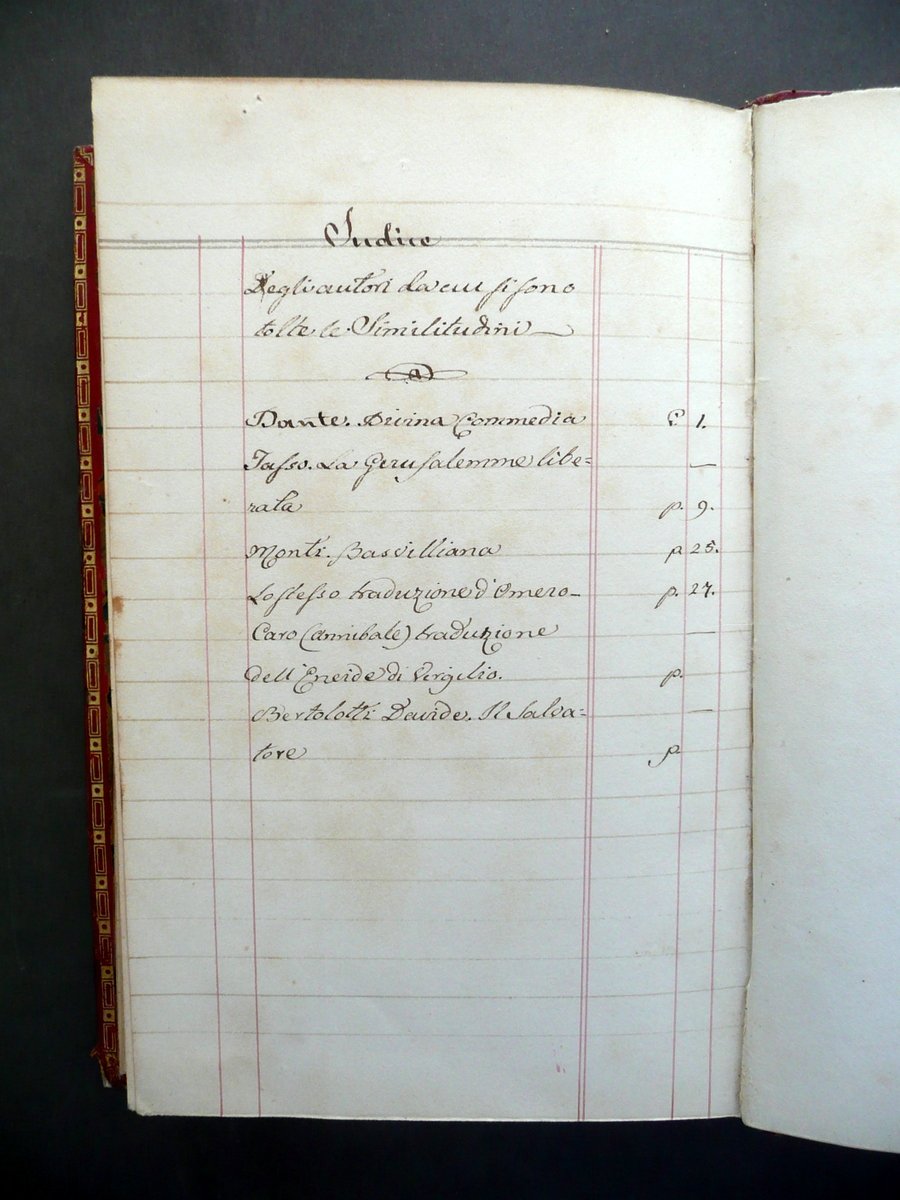 Indice
Degli autori da cui si sono
tolte le Similitudini —
Dante. Divina Commedia P 1.
Tasso. La Gerusalemme libe= —
rata p. 9.
Monti. Basvilliana p 25.
Lo stesso traduzione d'Omero – p. 27.
Caro (Annibale) traduzione —
dell'Eneide di Virgilio. p.
Bertolotti Davide. Il Salva= —
tore p